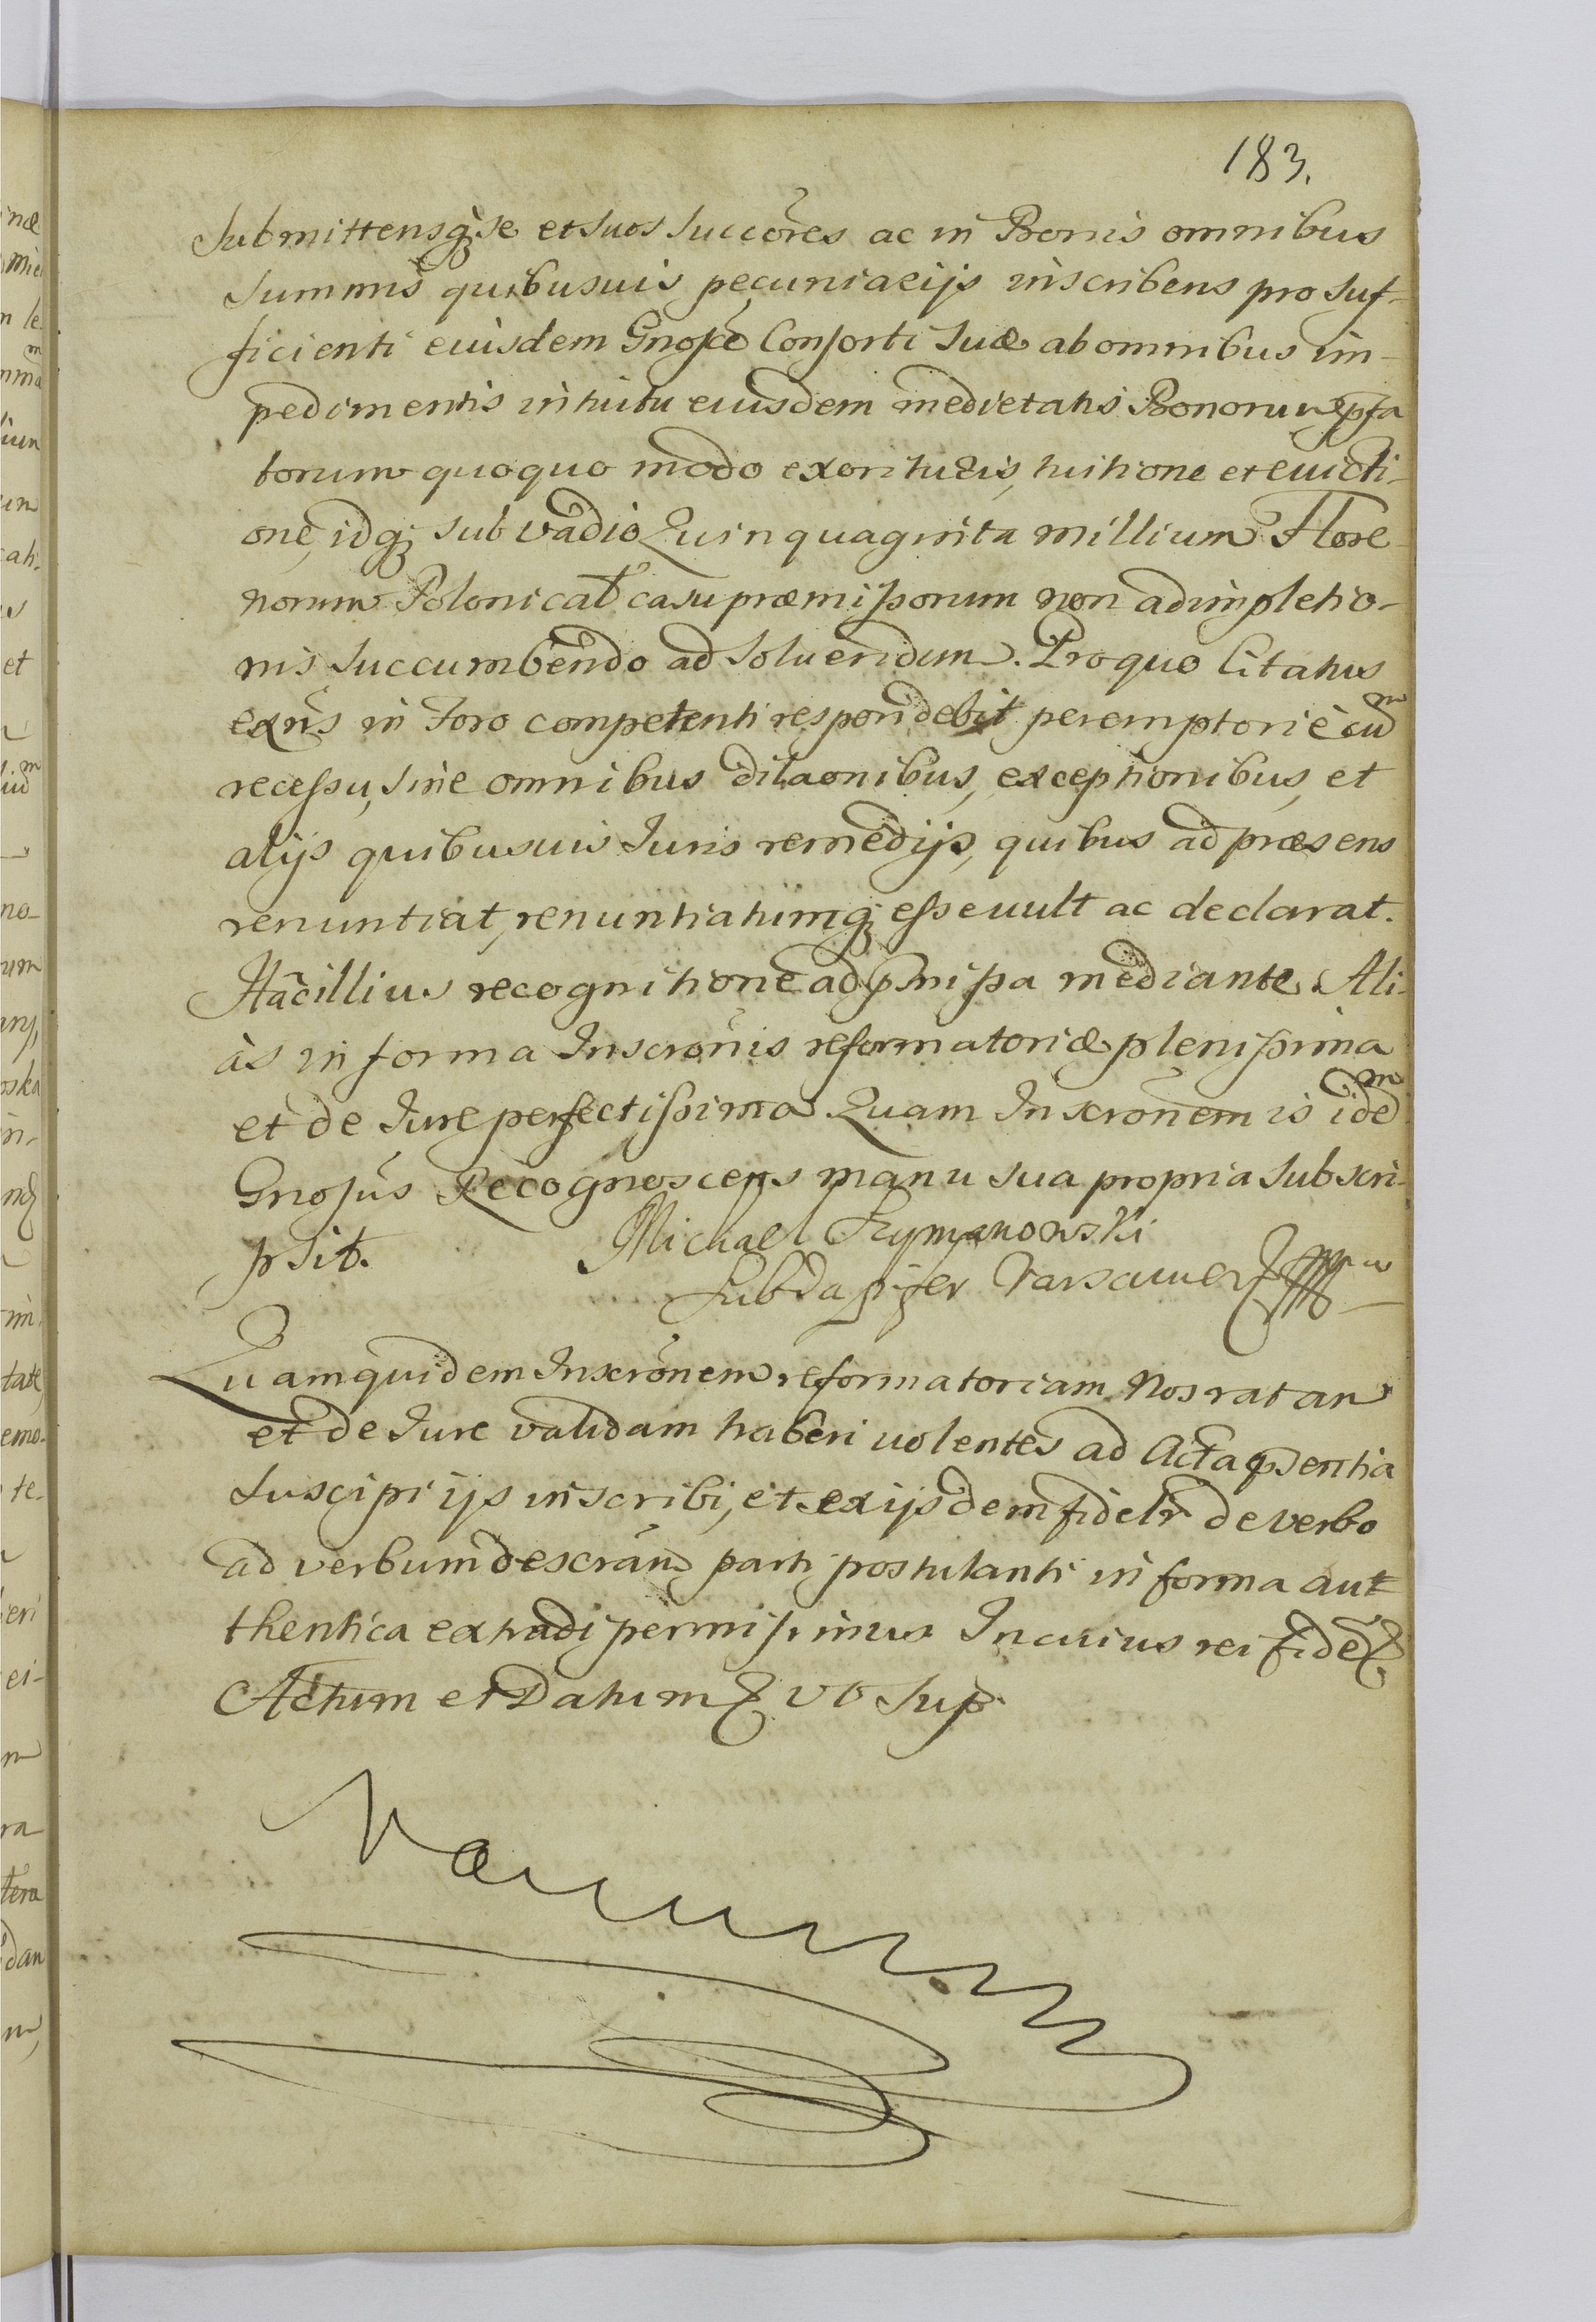 183.
Submittensq₃ se et suos Succőres ac in Bonis omnibus
Summis quibusuis pecuniarijs inscribens pro suf-
ficienti eiusdem Gnosæ Consorti suæ ab omnibus im-
pedimentis intuitu eiusdem medietatis Bonorum pfa
torum quoquo modo exorituris, tuitione et euicti-
one, idq₃ sub vadio Quinquaginta millium Flore
norum Polonicat casu præmissorum non adimpletio-
nis succumbendo ad soluendum. Pro quo Citatus
exñs in Foro competenti respondebit peremptoriè cuᵐ
recessu, sine omnibus dilaonibus, exceptionibus, et
alijs quibusuis Iuris remedijs, quibus ad præsens
renuntiat, renuntiatumq₃ esse uult ac declarat.
Hac illius recognitione ad pmissa mediante. Ali-
às in forma Inscronis reformatoriæ plenissima
et de Iure perfectissima. Quam Inscronem is ideᵐ
Gnosus Recognoscens manu sua propria subscri-
psit. Michael Szymanowski
Subdapifer Varsauien
Quamquidem Inscronem reformatoriam Nos ratam
et de Iure validam haberi uolentes ad Acta psentia
suscipi ijs inscribi, et ex ijsdem fidelr de verbo
ad verbum descram parti postulanti in forma aut
thentica extradi permisimus In cuius rei fidē
Actum et Datum ut sup